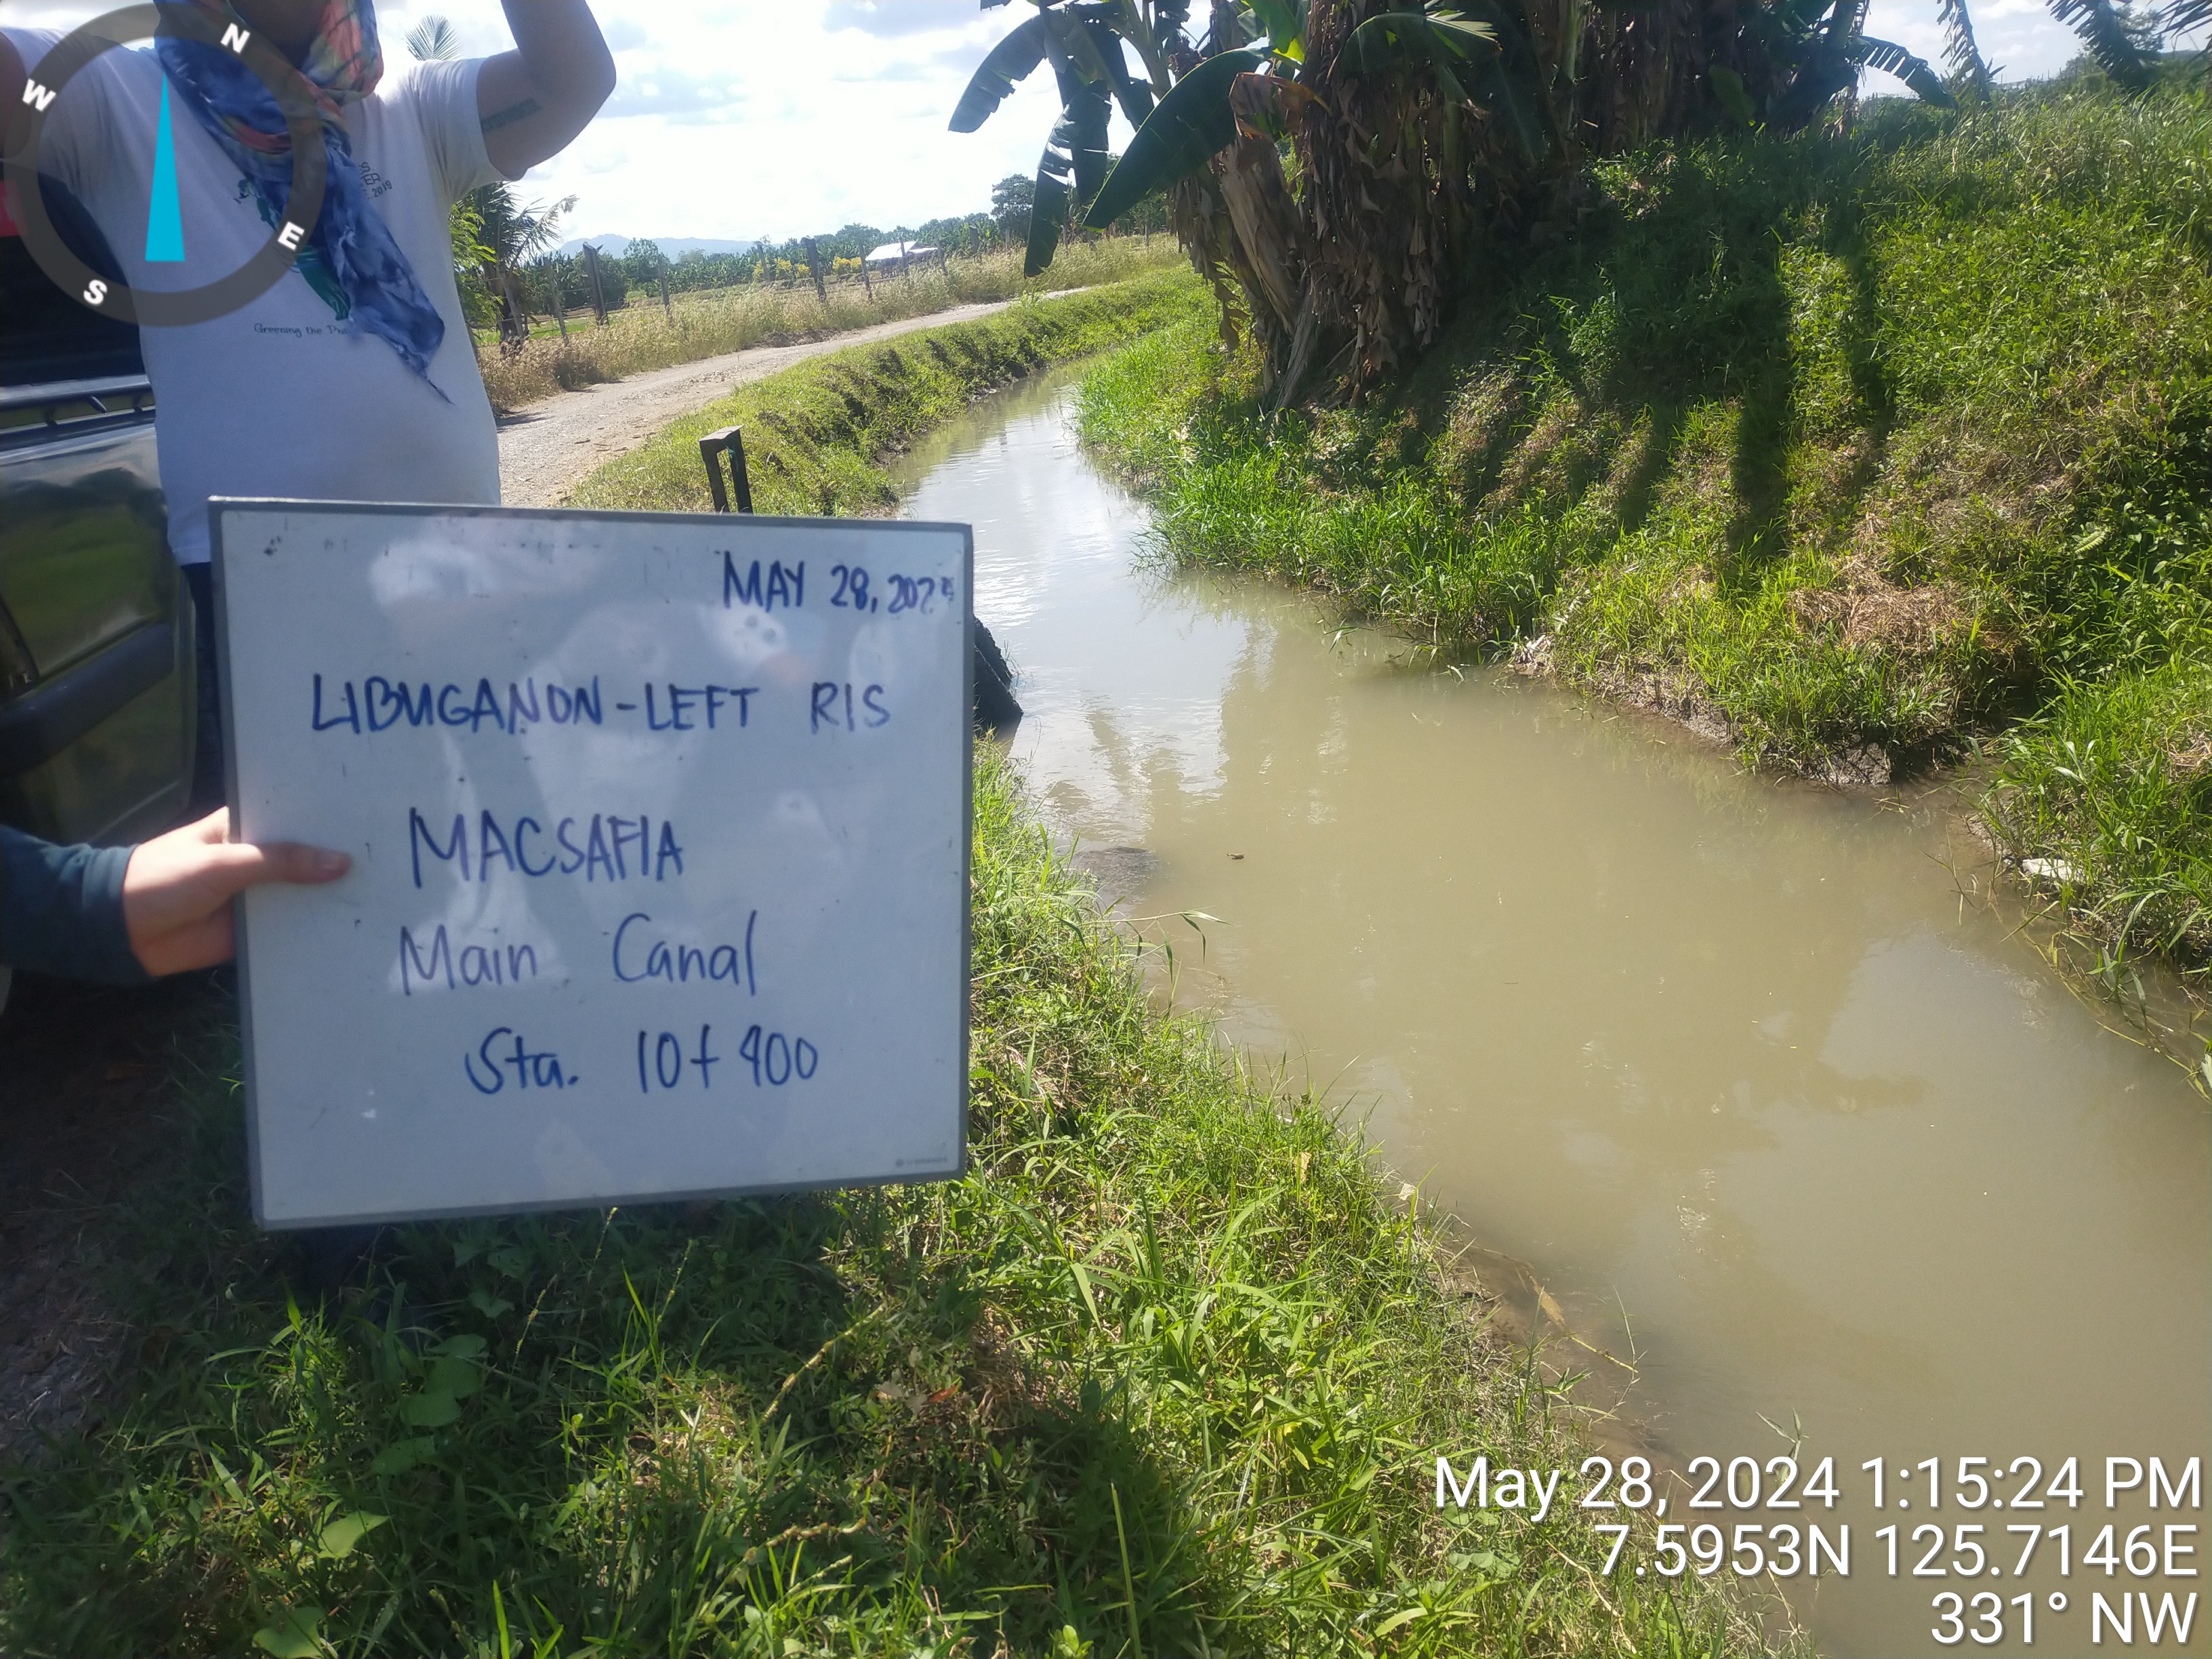 N
W
E
S
2019
Greening the
MAY 28, 202
LIBUGANON-LEFT RIS
MACSAFIA
Main Canal
Sta. 10+400
May 28, 2024 1:15:24 PM
7.5953N 125.7146E
331° NW